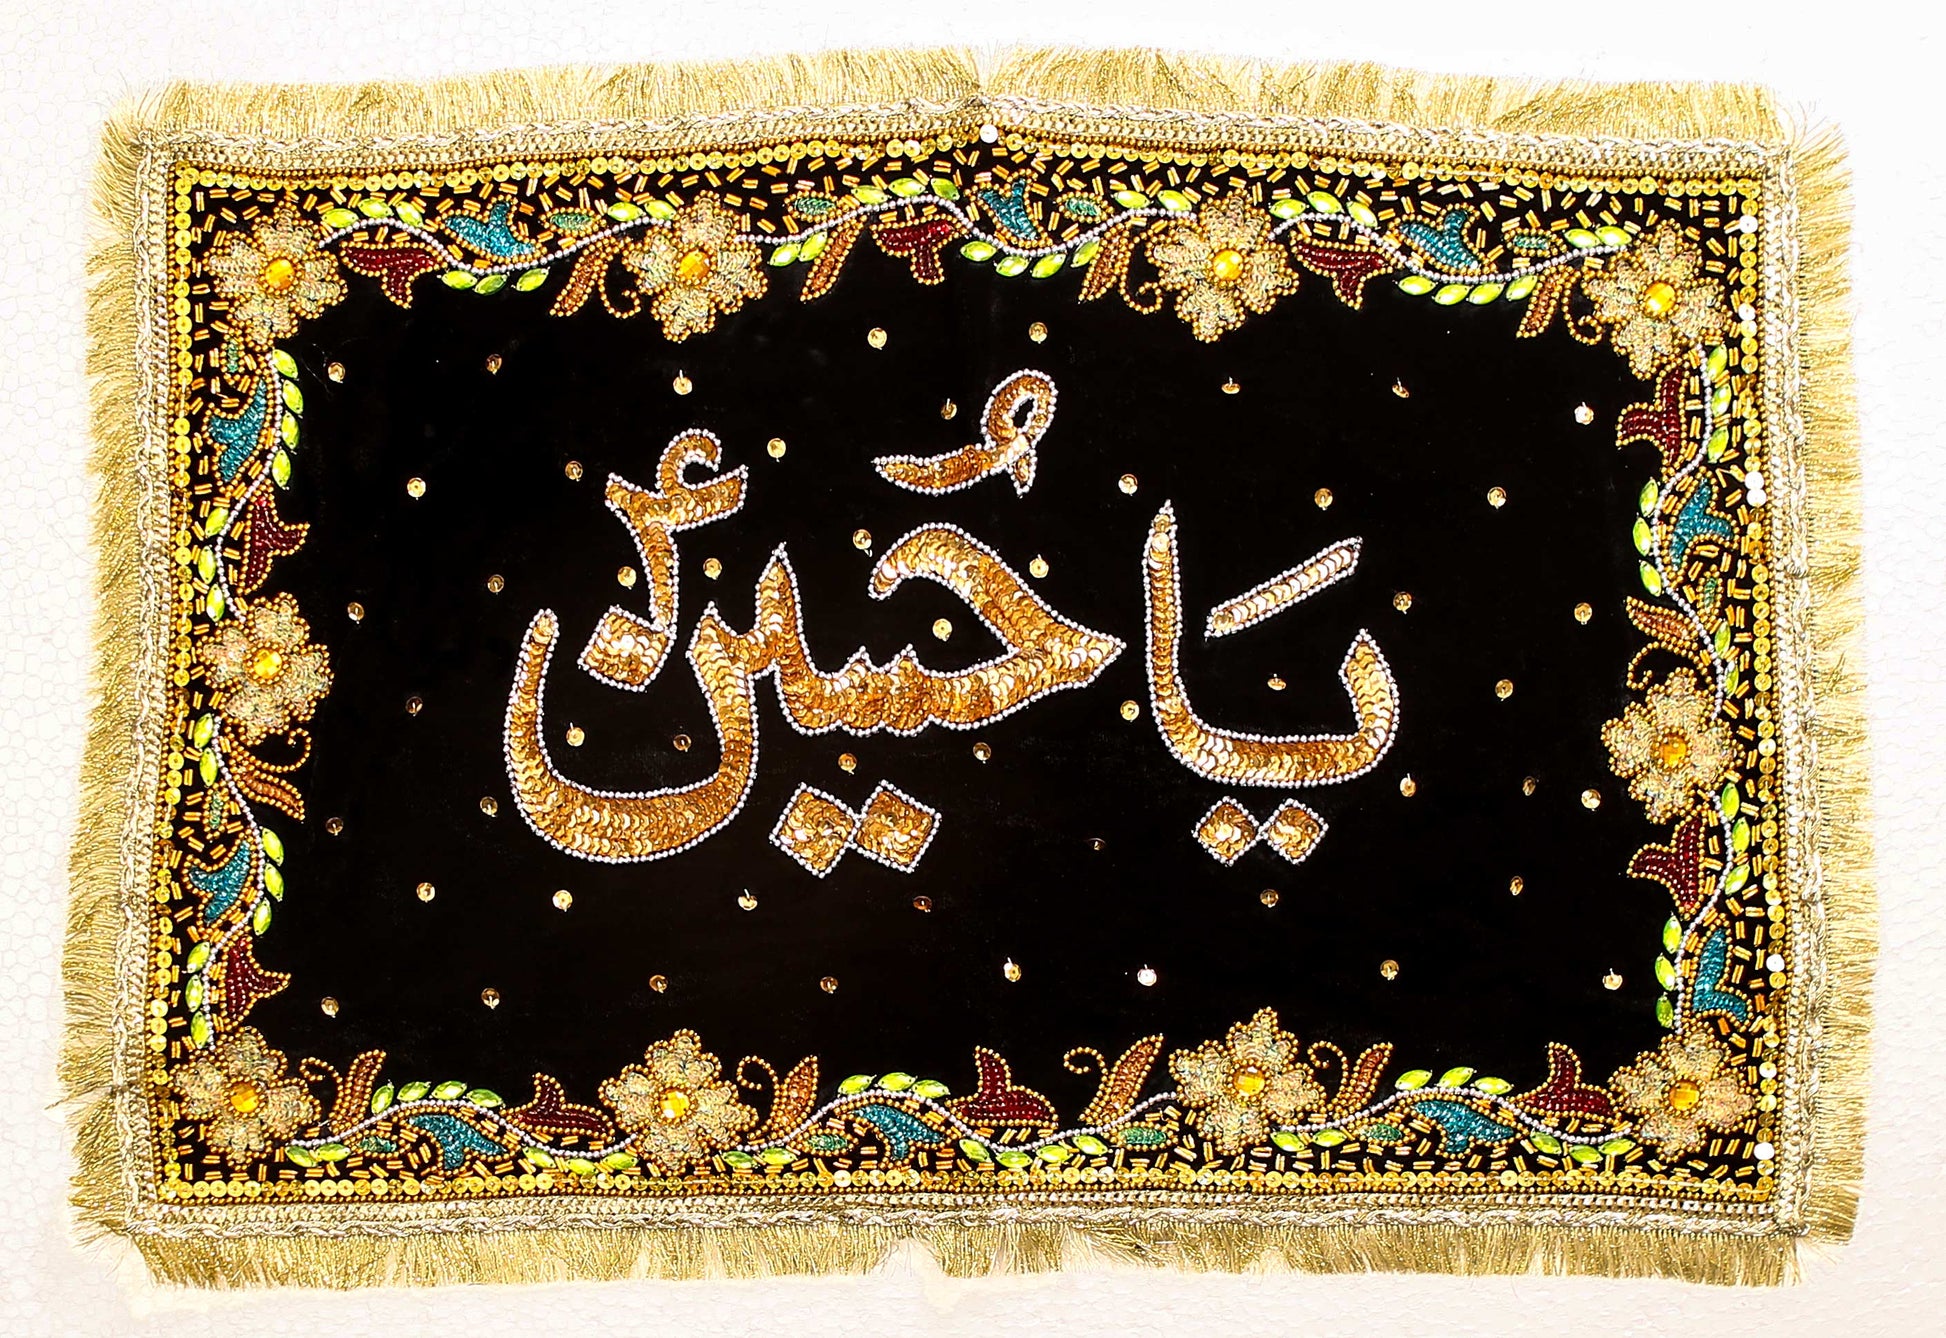 یَا حُسین؏